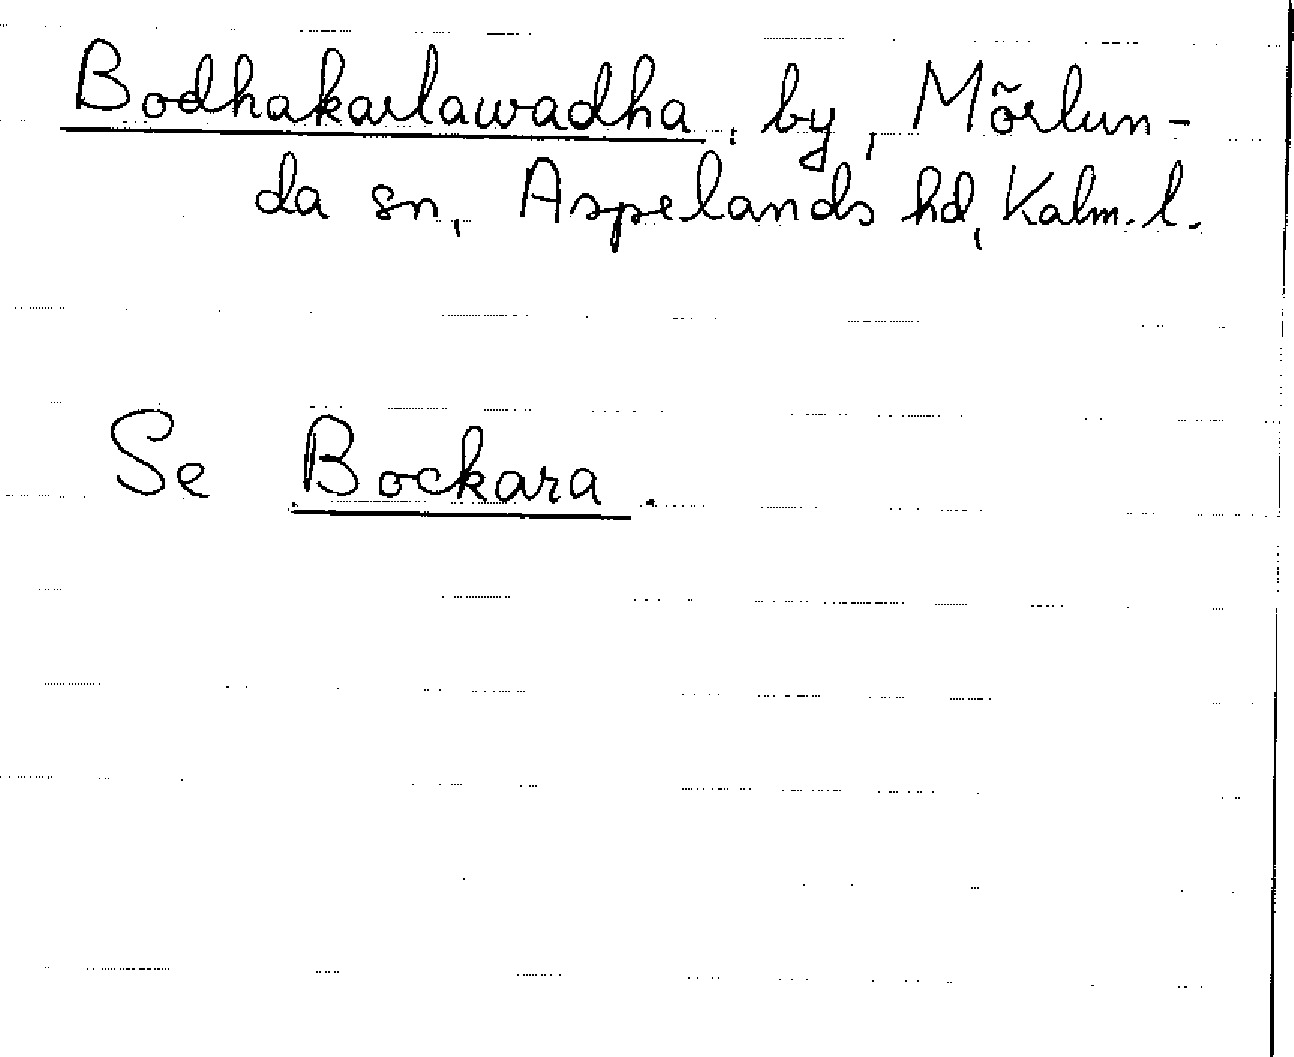 Bodhakarlawadha, by, Mörlun-
da sn, Aspelands hd, Kalm. l.
Se Bockara.